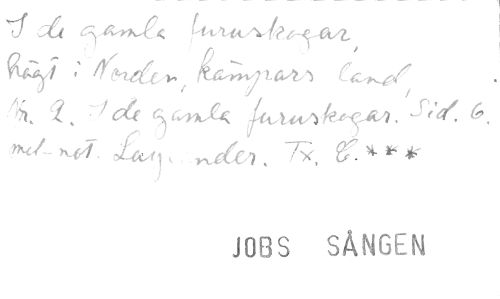 I de gamla furuskogar,
högt i Norden, kämpars land,
Nr. 2. I de gamla furuskogar. Sid. 6.
mel-not. Tx. C. ***
JOBS SÅNGEN